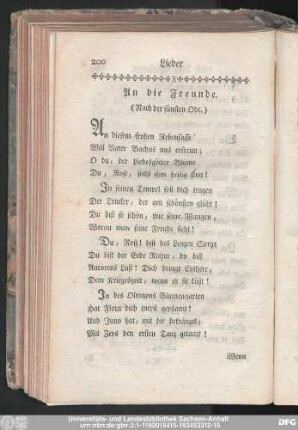 200 Lieder
An die Freunde.
(Nach der fünften Ode.)
An diesem frohen Rebensafte
Will Vater Bachus uns erfreun;
O du, der Liebesgötter Wonne
Du, Rose, sollst ihm heilig seyn!
In seinen Tempel soll dich tragen
Der Trinker, der am schönsten glüht!
Du bist so schön, wie seine Wangen,
Woran man seine Freude sieht!
Du, Rose! bist des Lenzen Sorge
Du bist der Erde Ruhm, du bist
Aurorens Lust! Dich bringt Cythere,
Dem Kriegesgott, wenn er sie küßt!
In des Olympus Blumengarten
Hat Flora dich zuerst gepflanzt!
Und Juno hat, mit dir bekränzet,
Mit Zevs den ersten Tanz getanzt!
Wenn
Universitäts- und Landesbibliothek Sachsen-Anhalt
urn:nbn:de:gbv:3:1-1192015415-163453312-15
DFG